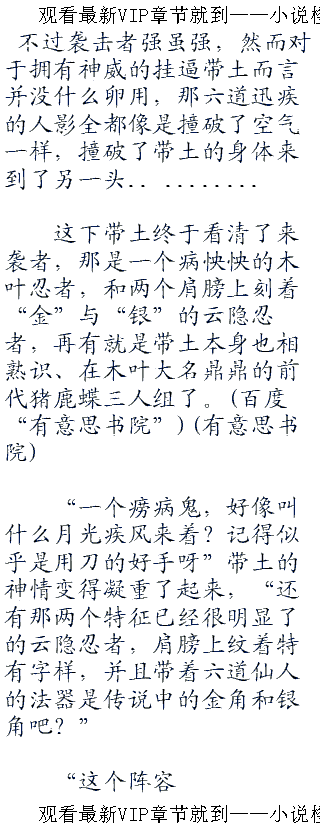 观看最新VIP章节就到——小说检
不过袭击者强虽强，然而对
于拥有神威的挂逼带土而言
并没什么卵用，那六道迅疾
的人影全都像是撞破了空气
一样，撞破了带土的身体来
到了另一头.. ........
这下带土终于看清了来
袭者，那是一个病怏怏的木
叶忍者，和两个肩膀上刻着
“金”与“银”的云隐忍
者，再有就是带土本身也相
熟识、在木叶大名鼎鼎的前
代猪鹿蝶三人组了。(百度
“有意思书院”)(有意思书
院)
“一个痨病鬼，好像叫
什么月光疾风来着？记得似
乎是用刀的好手呀”带土的
神情变得凝重了起来，“还
有那两个特征已经很明显了
的云隐忍者，肩膀上纹着特
有字样，并且带着六道仙人
的法器是传说中的金角和银
角吧？”
“这个阵容
观看最新VIP章节就到——小说检